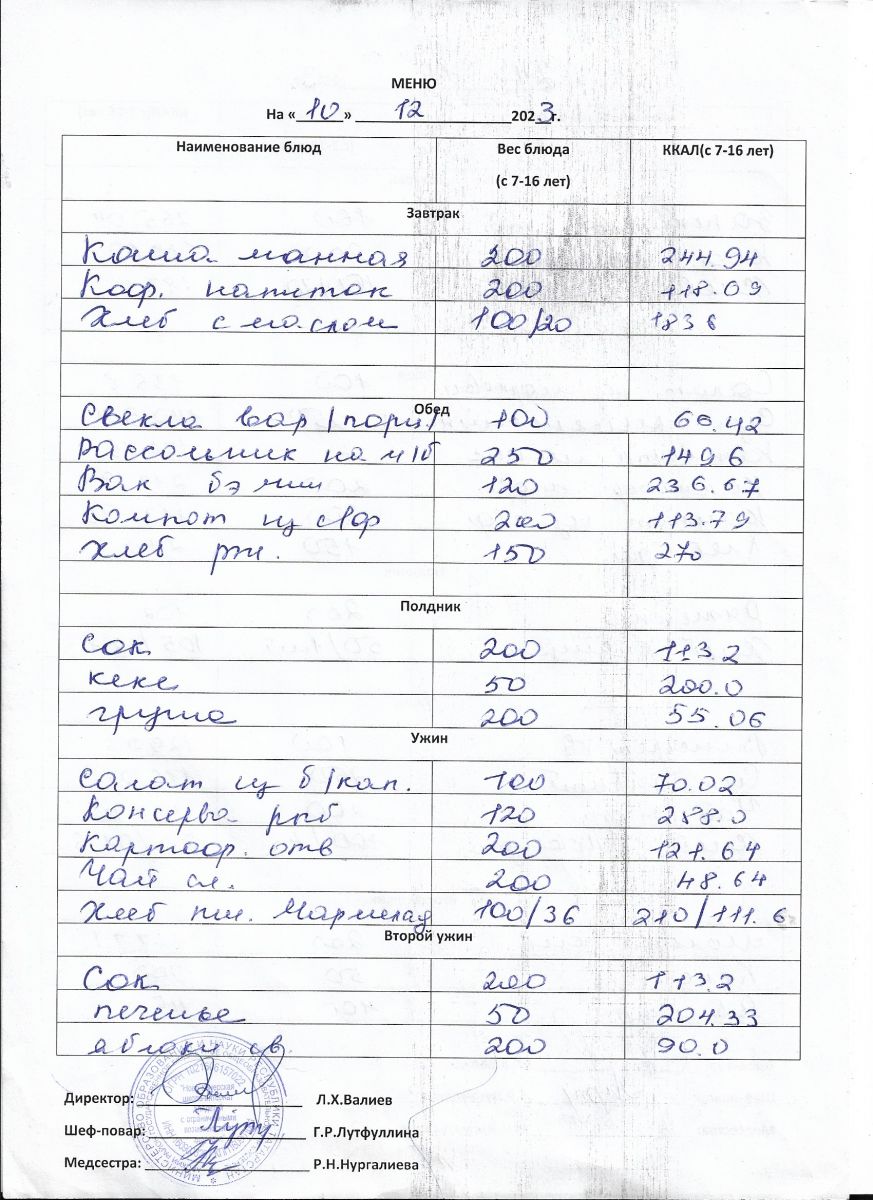 МЕНЮ
На «10» 12 2023г.
Наименование блюд Вес блюда (с 7-16 лет) ККАЛ(с 7-16 лет)
Завтрак
Каша манная 200 244.94
Коф. напиток 200 118.09
Хлеб с маслом 100/20 1836
Обед
Свекла вар/порц/ 100 66.42
Рассольник на м/б 250 1496
Вак бэлиш 120 236.67
Компот из с/ф 200 113.79
Хлеб рж. 150 270
Полдник
Сок 200 113.2
кекс 50 200.0
груша 200 55.06
Ужин
Салат из б/кап. 100 70.02
Консерва рыб 120 288.0
Картоф. отв 200 121.64
Чай сл. 200 48.64
Хлеб пш. Мармелад 100/36 210/111.6
Второй ужин
Сок 200 113.2
печенье 50 204.33
яблоки св. 200 90.0
Директор: Л.Х.Валиев
Шеф-повар: Г.Р.Лутфуллина
Медсестра: Р.Н.Нургалиева